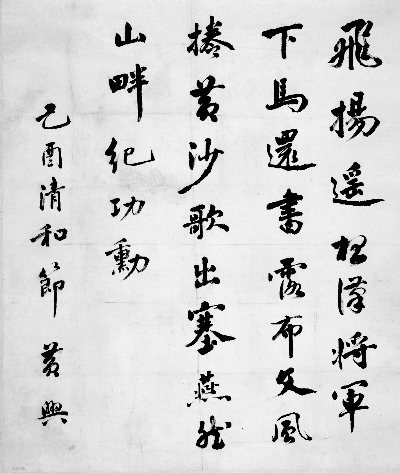 飛揚遥想漢將軍
下馬還書露布文風
捲黄沙歌出塞燕然
山畔紀功勳
己酉清和節 黄興